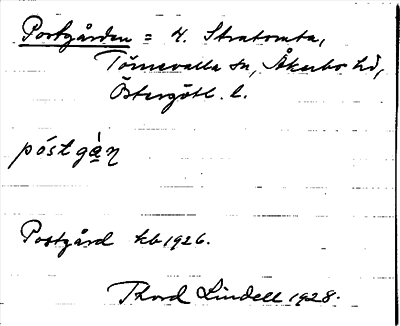 Postgården = N. Stratomta,
Törnevalla sn, Åkerbo hd,
Östergötl. l.
póstgà̱ṇ
Postgård kb 1926.
Thord Lindell 1928.